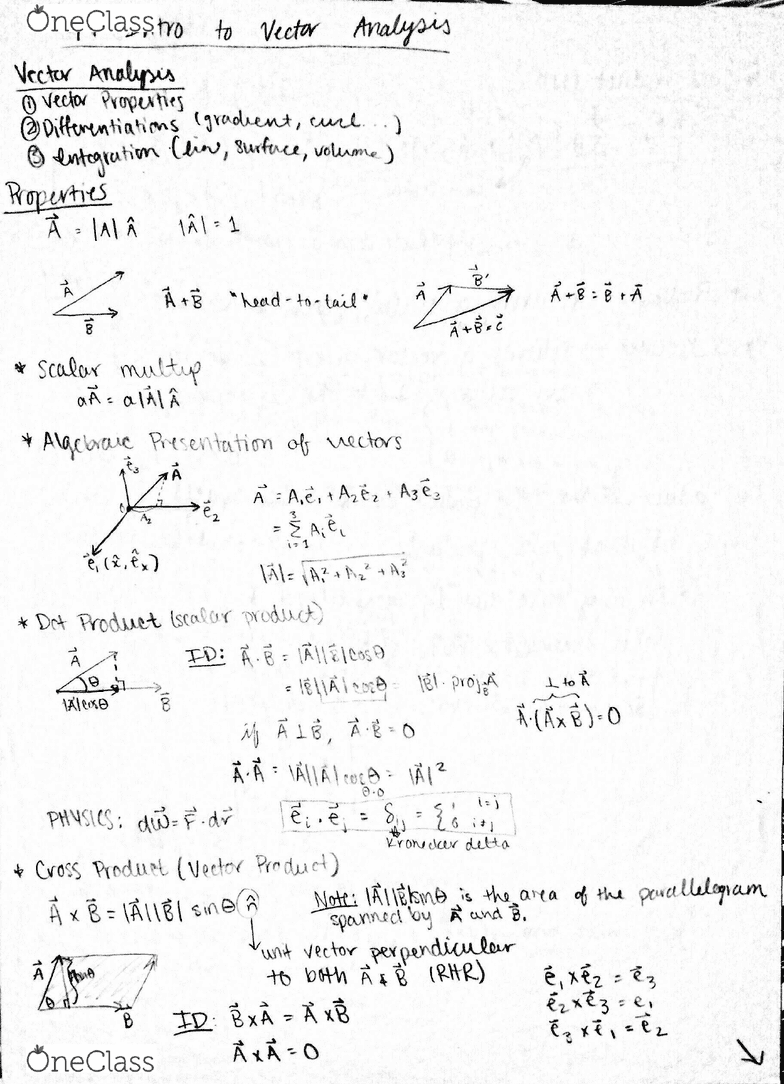 OneClass
Intro to Vector Analysis
Vector Analysis
① Vector Properties
② Differentiations (gradient, curl...)
③ Integration (line, surface, volume)
Properties
A⃗ = |A| Â   |Â| = 1
A⃗
B⃗
A⃗+B⃗ "head-to-tail"
A⃗
B⃗'
A⃗+B⃗=C⃗
A⃗+B⃗ = B⃗+A⃗
* Scalar multip
aA⃗ = a|A⃗|Â
* Algebraic Presentation of vectors
e⃗₃
A⃗
A₂
e⃗₂
e⃗₁(x̂, ê_x)
A⃗ = A₁e⃗₁ + A₂e⃗₂ + A₃e⃗₃
= ∑_{i=1}^{3} Aᵢe⃗ᵢ
|A⃗| = √(A₁² + A₂² + A₃²)
* Dot Product (scalar product)
A⃗
θ
|A⃗|cosθ
B⃗
ID: A⃗·B⃗ = |A⃗||B⃗|cosθ
= |B⃗||A⃗|cosθ = |B⃗|·proj_B⃗ A⃗
⊥ to A⃗
A⃗·(A⃗×B⃗)=0
if A⃗⊥B⃗, A⃗·B⃗=0
A⃗·A⃗ = |A⃗||A⃗|cosθ = |A⃗|²
θ=0
PHYSICS: dw⃗=F⃗·dr⃗
e⃗ᵢ·e⃗ⱼ = δᵢⱼ = { 1 i=j
0 i≠j
Kronecker delta
* Cross Product (Vector Product)
A⃗ × B⃗ = |A⃗||B⃗| sinθ n̂
Note: |A⃗||B⃗|sinθ is the area of the parallelogram
spanned by A⃗ and B⃗.
unit vector perpendicular
to both A⃗ & B⃗ (RHR)
A⃗
θ
B
ID: B⃗×A⃗ = A⃗×B⃗
A⃗×A⃗=0
e⃗₁×e⃗₂ = e⃗₃
e⃗₂×e⃗₃ = e₁
e⃗₃×e⃗₁ = e⃗₂
OneClass